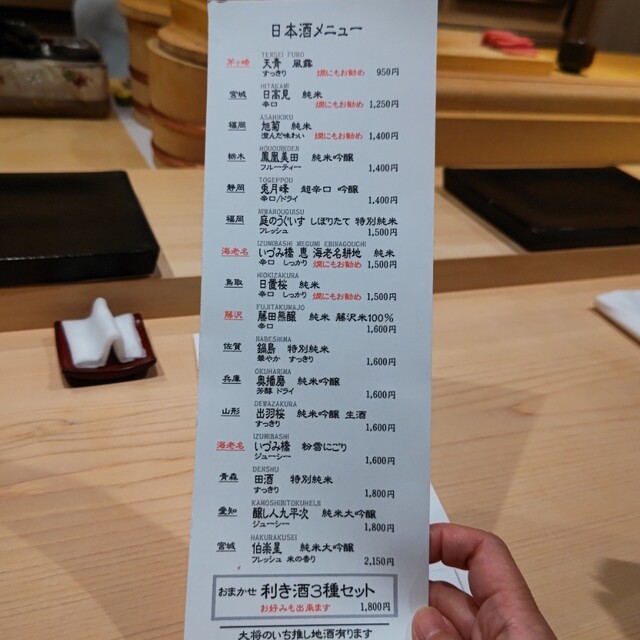 日本酒メニュー
TENSEI FURO
茅ヶ崎 天青 風露
すっきり 燗にもお勧め 950円
HITAKAMI
宮城 日高見 純米
辛口 燗にもお勧め 1,250円
ASAHIKIKU
福岡 旭菊 純米
澄んだ味わい 燗にもお勧め 1,400円
HOUOUBIDEN
栃木 鳳凰美田 純米吟醸
フルーティー 1,400円
TOGEPPOU
静岡 兎月峰 超辛口 吟醸
辛口/ドライ 1,400円
NIWANOUGUISU
福岡 庭のうぐいす しぼりたて 特別純米
フレッシュ 1,500円
IZUMIBASHI MEGUMI EBINAGOUCHI
海老名 いづみ橋 恵 海老名耕地 純米
辛口 しっかり 燗にもお勧め 1,500円
HIOKIZAKURA
鳥取 日置桜 純米
辛口 しっかり 燗にもお勧め 1,500円
FUJITAKUMAJO
藤沢 藤田熊醸 純米 藤沢米100%
辛口 1,600円
NABESHIMA
佐賀 鍋島 特別純米
華やか すっきり 1,600円
OKUHARIMA
兵庫 奥播磨 純米吟醸
芳醇 ドライ 1,600円
DEWAZAKURA
山形 出羽桜 純米吟醸 生酒
すっきり 1,600円
IZUMIBASHI
海老名 いづみ橋 粉雪にごり
ジューシー 1,600円
DENSHU
青森 田酒 特別純米
すっきり 1,800円
KAMOSHIBITOKUHEIJI
愛知 醸し人九平次 純米大吟醸
ジューシー 1,800円
HAKURAKUSEI
宮城 伯楽星 純米大吟醸
フレッシュ 米の香り 2,150円
おまかせ 利き酒3種セット
お好みも出来ます 1,800円
大将のいち推し地酒有ります